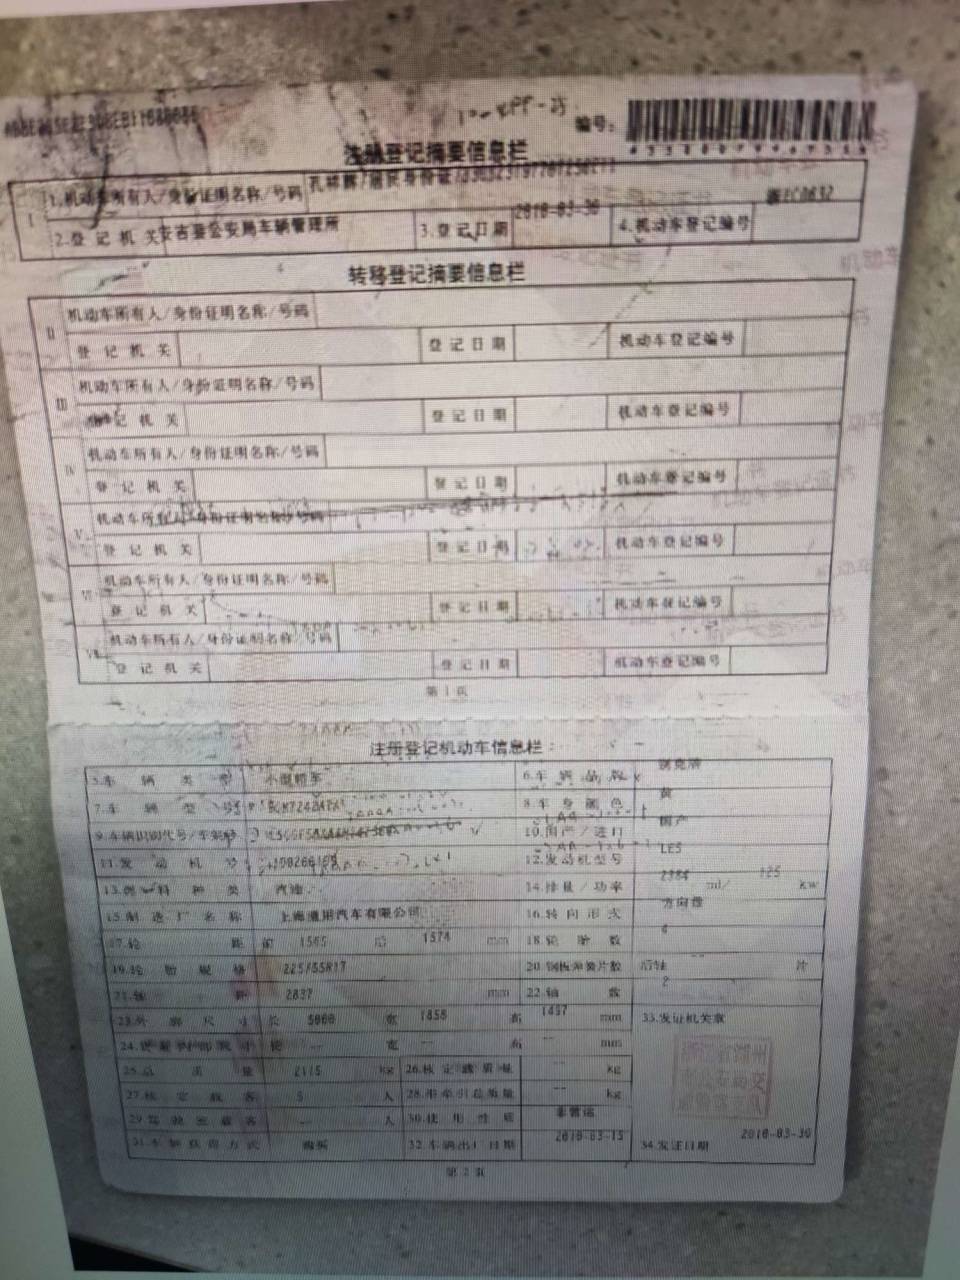 编号:
注册登记摘要信息栏
I 1.机动车所有人/身份证明名称/号码 居民身份证
2.登记机关 安吉县公安局车辆管理所 3.登记日期 2010-03-30 4.机动车登记编号
转移登记摘要信息栏
II 机动车所有人/身份证明名称/号码
登记机关 登记日期 机动车登记编号
III 机动车所有人/身份证明名称/号码
登记机关 登记日期 机动车登记编号
IV 机动车所有人/身份证明名称/号码
登记机关 登记日期 机动车登记编号
V 机动车所有人/身份证明名称/号码
登记机关 登记日期 机动车登记编号
VI 机动车所有人/身份证明名称/号码
登记机关 登记日期 机动车登记编号
VII 机动车所有人/身份证明名称/号码
登记机关 登记日期 机动车登记编号
第1页
注册登记机动车信息栏
5.车辆类型 小型轿车 6.车辆品牌 别克牌
7.车辆型号 8.车身颜色 黄
9.车辆识别代号/车架号 10.国产/进口 国产
11.发动机号 12.发动机型号 LE5
13.燃料种类 汽油 14.排量/功率 2384 ml/ 125 kw
15.制造厂名称 上海通用汽车有限公司 16.转向形式 方向盘
17.轮距 前 1565 后 1574 mm 18.轮胎数 4
19.轮胎规格 225/55R17 20.钢板弹簧片数 后轴 -- 片
21.轴距 2837 mm 22.轴数 2
23.外廓尺寸 长 5000 宽 1858 高 1497 mm 33.发证机关章
24.货厢内部尺寸 长 -- 宽 -- 高 -- mm
25.总质量 2115 kg 26.核定载质量 -- kg
27.核定载客 5 人 28.准牵引总质量 -- kg
29.驾驶室载客 -- 人 30.使用性质 非营运
31.车辆获得方式 购买 32.车辆出厂日期 2010-03-15 34.发证日期 2010-03-30
第2页